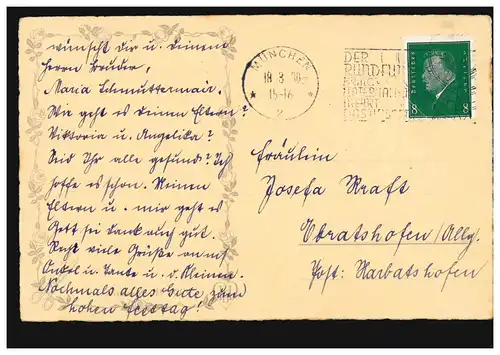 wünscht dir u. deinem
Herrn Bruder,
Maria Schmuttermair.
Wie geht es deinen Eltern?
Viktoria u. Angelika?
Seid Ihr alle gesund? Ich
hoffe es schon. Meinen
Eltern u. mir geht es
Gott sei Dank auch gut.
Recht viele Grüße an
Onkel u. Tante u. d. Kleinen.
Nochmals alles Gute zum
hohen Festtag!
MÜNCHEN
18 3
15-16
2
DER
RUNDFU
Deutsches Reich
8 8
Fräulein
Josefa Kraft
Ebratshofen/Allg.
Post: Harbatshofen